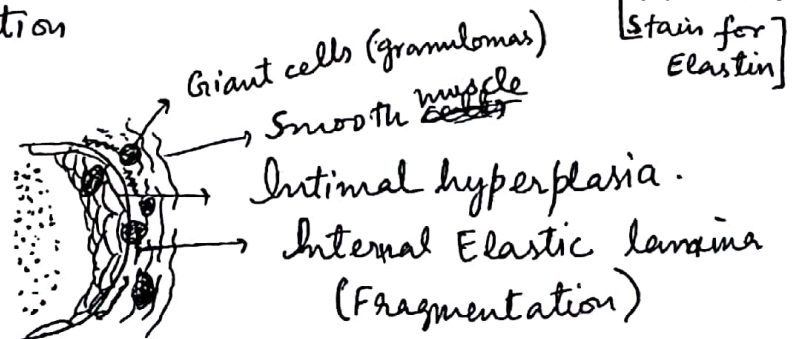 tion
[Stain for
Elastin]
Giant cells (granulomas)
Smooth muscle
Intimal hyperplasia.
Internal Elastic lamina
(Fragmentation)